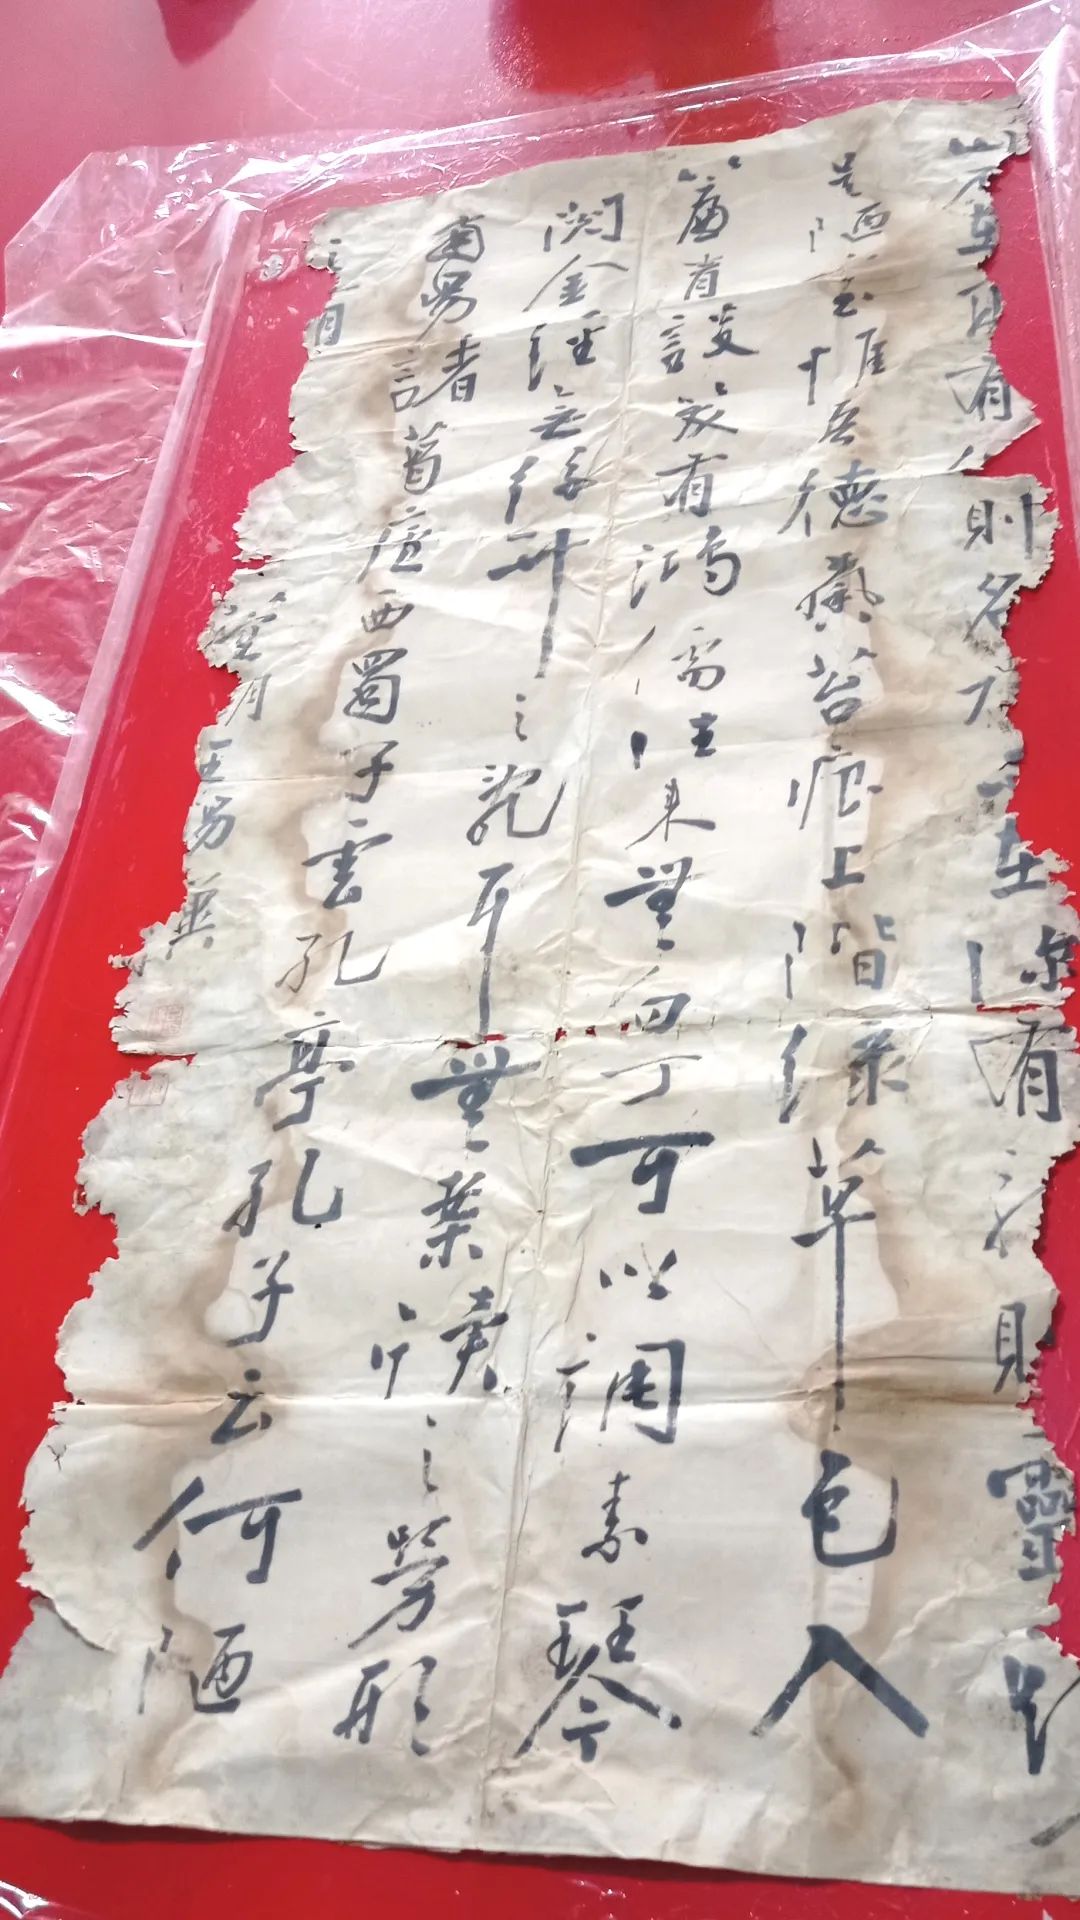 山在有則名在深有則靈是
是陋室惟吾德馨苔痕上階綠草色入
簾青談笑有鴻儒往來無白丁可以調素琴
閱金經無絲竹之亂耳無案牘之勞形
南陽諸葛廬西蜀子雲孔亭孔子云何陋
之有
月王